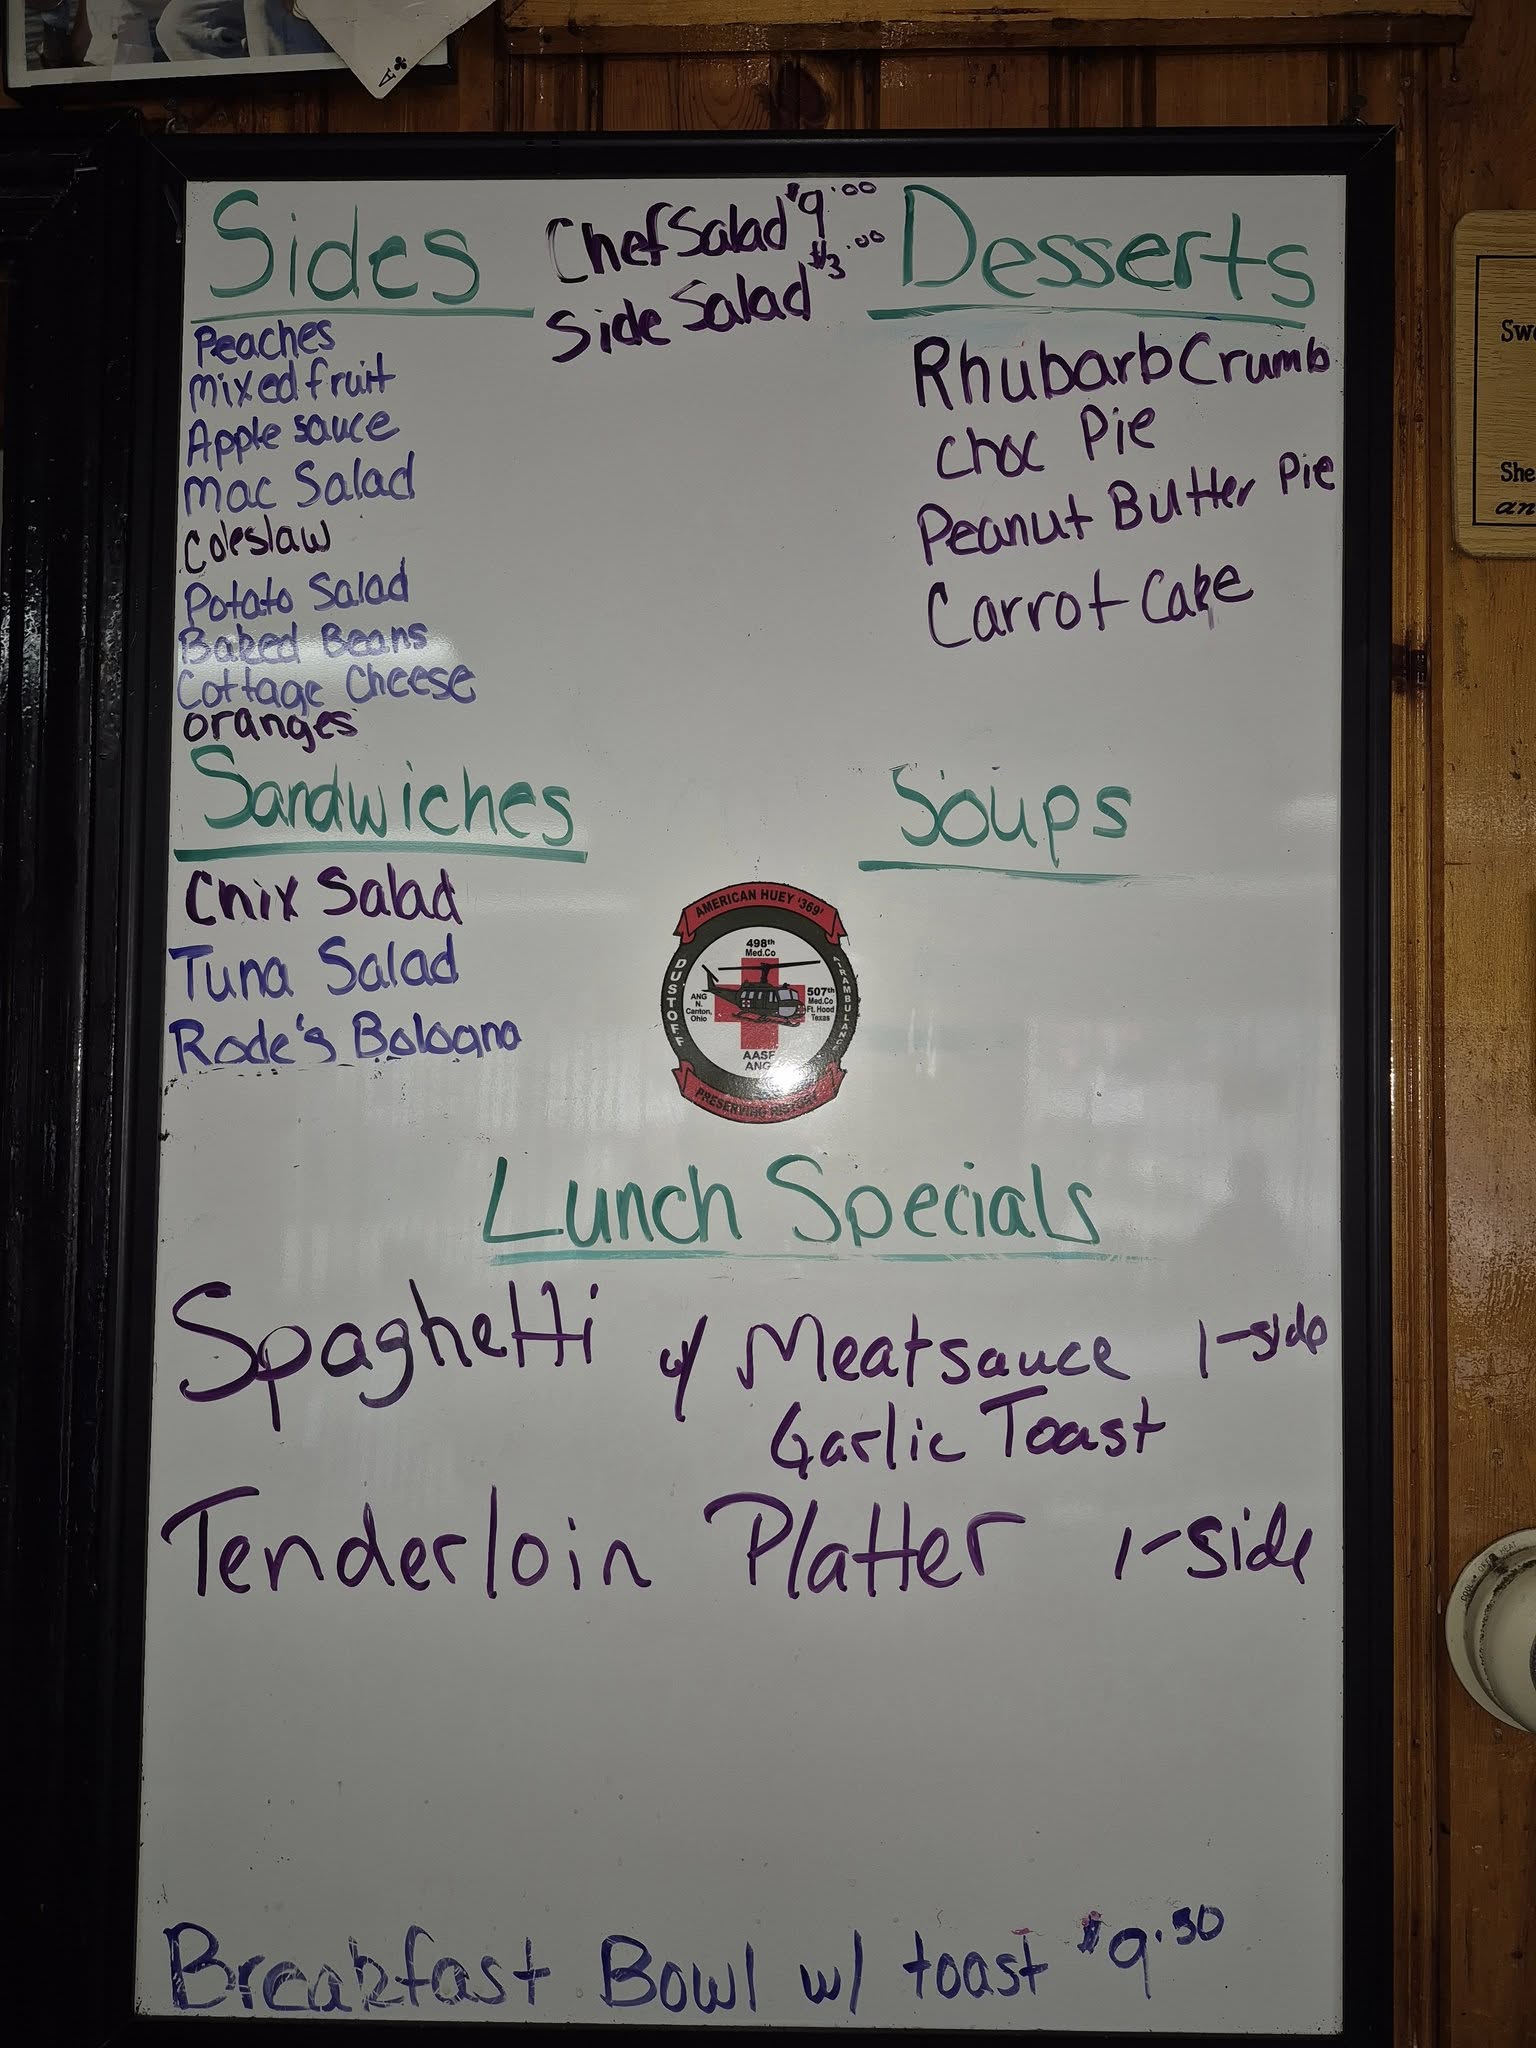 A
Sides
Chef Salad $9.00
Side Salad $3.00
Desserts
Peaches
mixed fruit
Apple sauce
Mac Salad
Coleslaw
Potato Salad
Baked Beans
Cottage Cheese
oranges
Rhubarb Crumb
Choc Pie
Peanut Butter Pie
Carrot Cake
Sandwiches
Chix Salad
Tuna Salad
Rode's Bologna
Soups
AMERICAN HUEY '369'
498th
Med.Co
DUSTOFF
AIRAMBULANCE
ANG
N.
Canton,
Ohio
507th
Med.Co
Ft. Hood
Texas
AASF
ANG
PRESERVING HISTORY
Lunch Specials
Spaghetti w/ Meatsauce 1-side
Garlic Toast
Tenderloin Platter 1-side
Breakfast Bowl w/ toast $9.50
She
an